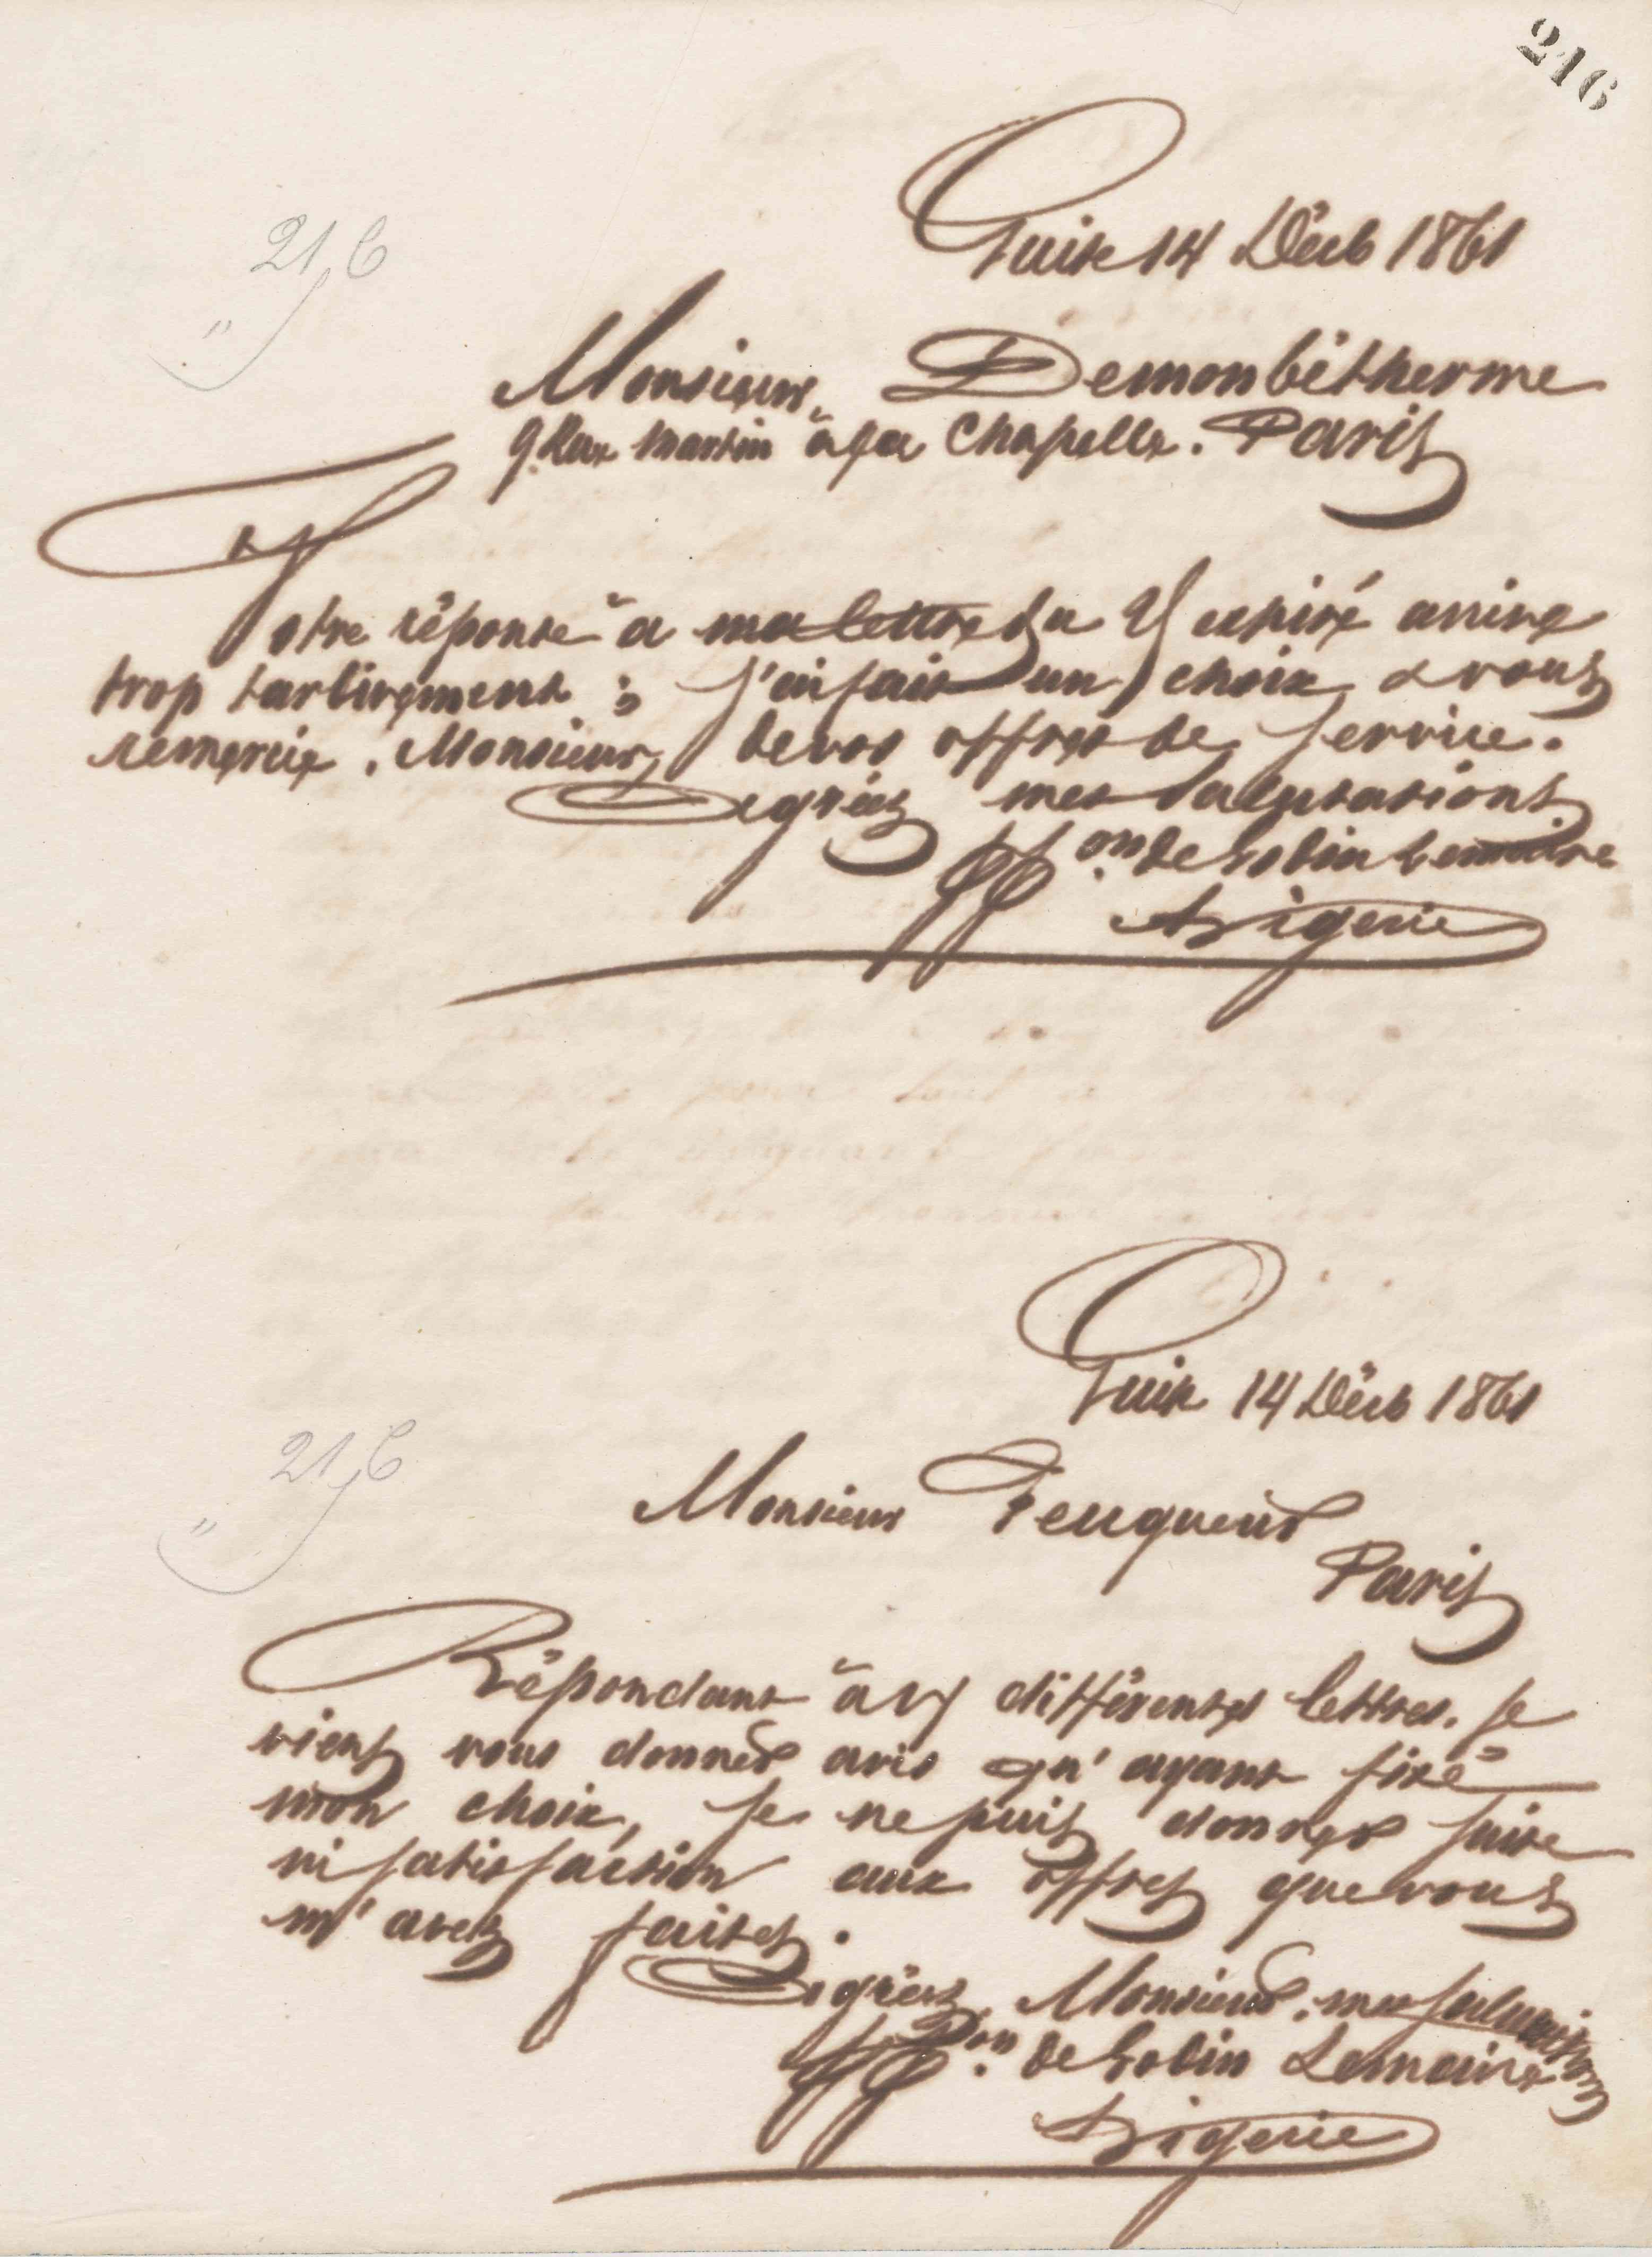 216
Guise 14 Décb 1861
216
"
Monsieur Demonbétherme
9 Rue Martin à la Chapelle. Paris
Votre réponse à ma lettre du expiré arrive
trop tardivement ; j'ai fait un choix & vous
remercie, Monsieur, de vos offres de service.
Agréez mes salutations.
on de Godin Lemaire
Rigerie
Guise 14 Décb 1861
216
"
Monsieur Feuqueur
Paris
Répondant à vos différentes lettres. je
viens vous donner avis qu'ayant fixé
mon choix, je ne puis donner suite
ni satisfaction aux offres que vous
m'avez faites.
Agréez, Monsieur, mes salutations
on de Godin Lemaire
Rigerie